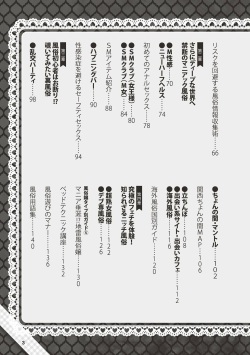 リスクを回避する風俗情報収集術……66
第三章
さらにディープな世界へ
禁断のマニアック風俗
●M性感……70
●ニューハーフヘルス……74
初めてのアナルセックス……78
●SMクラブ(女王様)……80
●SMクラブ(M女)……84
SMアイテム紹介……88
●ハプニングバー……90
性感染症を避けるセーフティセックス……94
風俗初心者は危険!?
覗いてみたい裏風俗
●乱交パーティ……98
●ちょんの間・マントル……102
関西ちょんの間MAP……106
●立ちんぼ……108
●出会い系サイト・出会いカフェ……112
●海外風俗……116
海外風俗国別ガイド……120
究極のフェチを体験!
知られざるニッチ風俗
●超熟女風俗……122
●デブ専風俗……126
風俗嬢タイプ別ガイド④
マニア垂涎!?地雷風俗嬢……130
ベッドテクニック講座……132
風俗遊びのマナー……136
風俗用語集……140
3